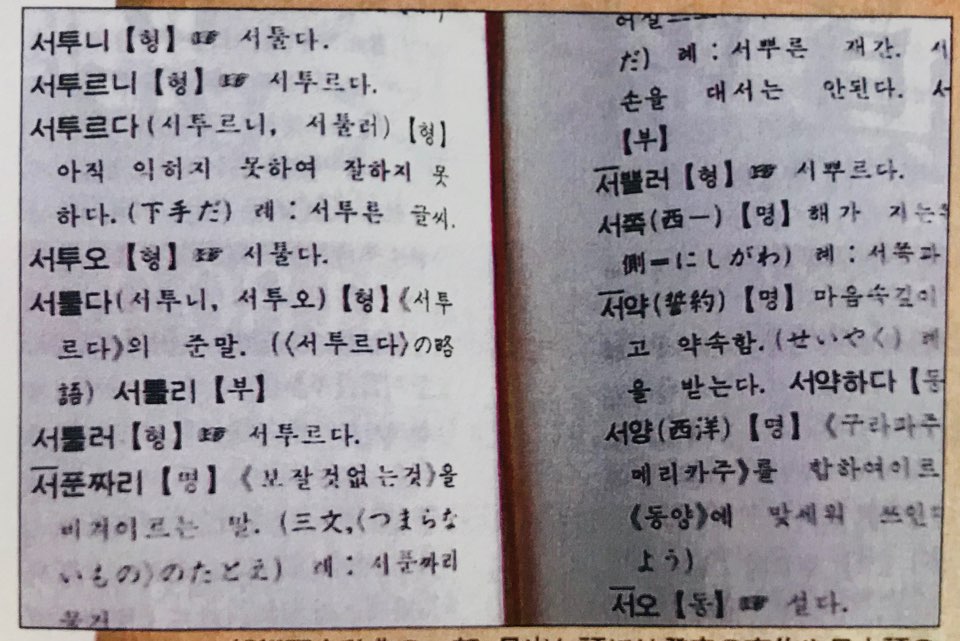 서투니【형】☞ 서툴다.
서투르니【형】☞ 서투르다.
서투르다(서투르니, 서툴러)【형】
아직 익히지 못하여 잘하지 못
하다.(下手だ) 례: 서투른 글씨.
서투오【형】☞ 서툴다.
서툴다(서투니, 서투오)【형】《서투
르다》의 준말. (〈서투르다〉の略
語) 서툴리【부】
서툴러【형】☞ 서투르다.
서푼짜리【명】《보잘것없는것》을
비겨이르는 말. (三文,〈つまらな
いもの〉のたとえ) 례: 서푼짜리
물건
だ) 례: 서뿌른 재간. 서
손을 대서는 안된다. 서
【부】
서뿔러【형】☞ 서뿌르다.
서쪽(西一)【명】해가 지는
側＝にしがわ) 례: 서쪽과
서약(誓約)【명】마음속깊이
고 약속함.(せいやく) 례
을 받는다. 서약하다【동
서양(西洋)【명】《구라파주
메리카주》를 합하여이르
《동양》에 맞세워 쓰인다
よう)
서오【동】☞ 설다.